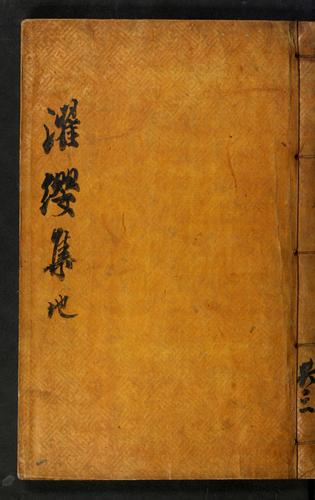 濯纓集 地
共三